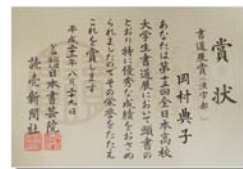 賞状
書道展賞(漢字部)
岡村典子
あなたは第十五回全日本高校
大学生書道展において頭書の
とおり特に優秀な成績をおさめ
られましたのでその栄誉をたたえ
これを賞します
平成二十二年八月二十九日
日本書芸院
読売新聞社